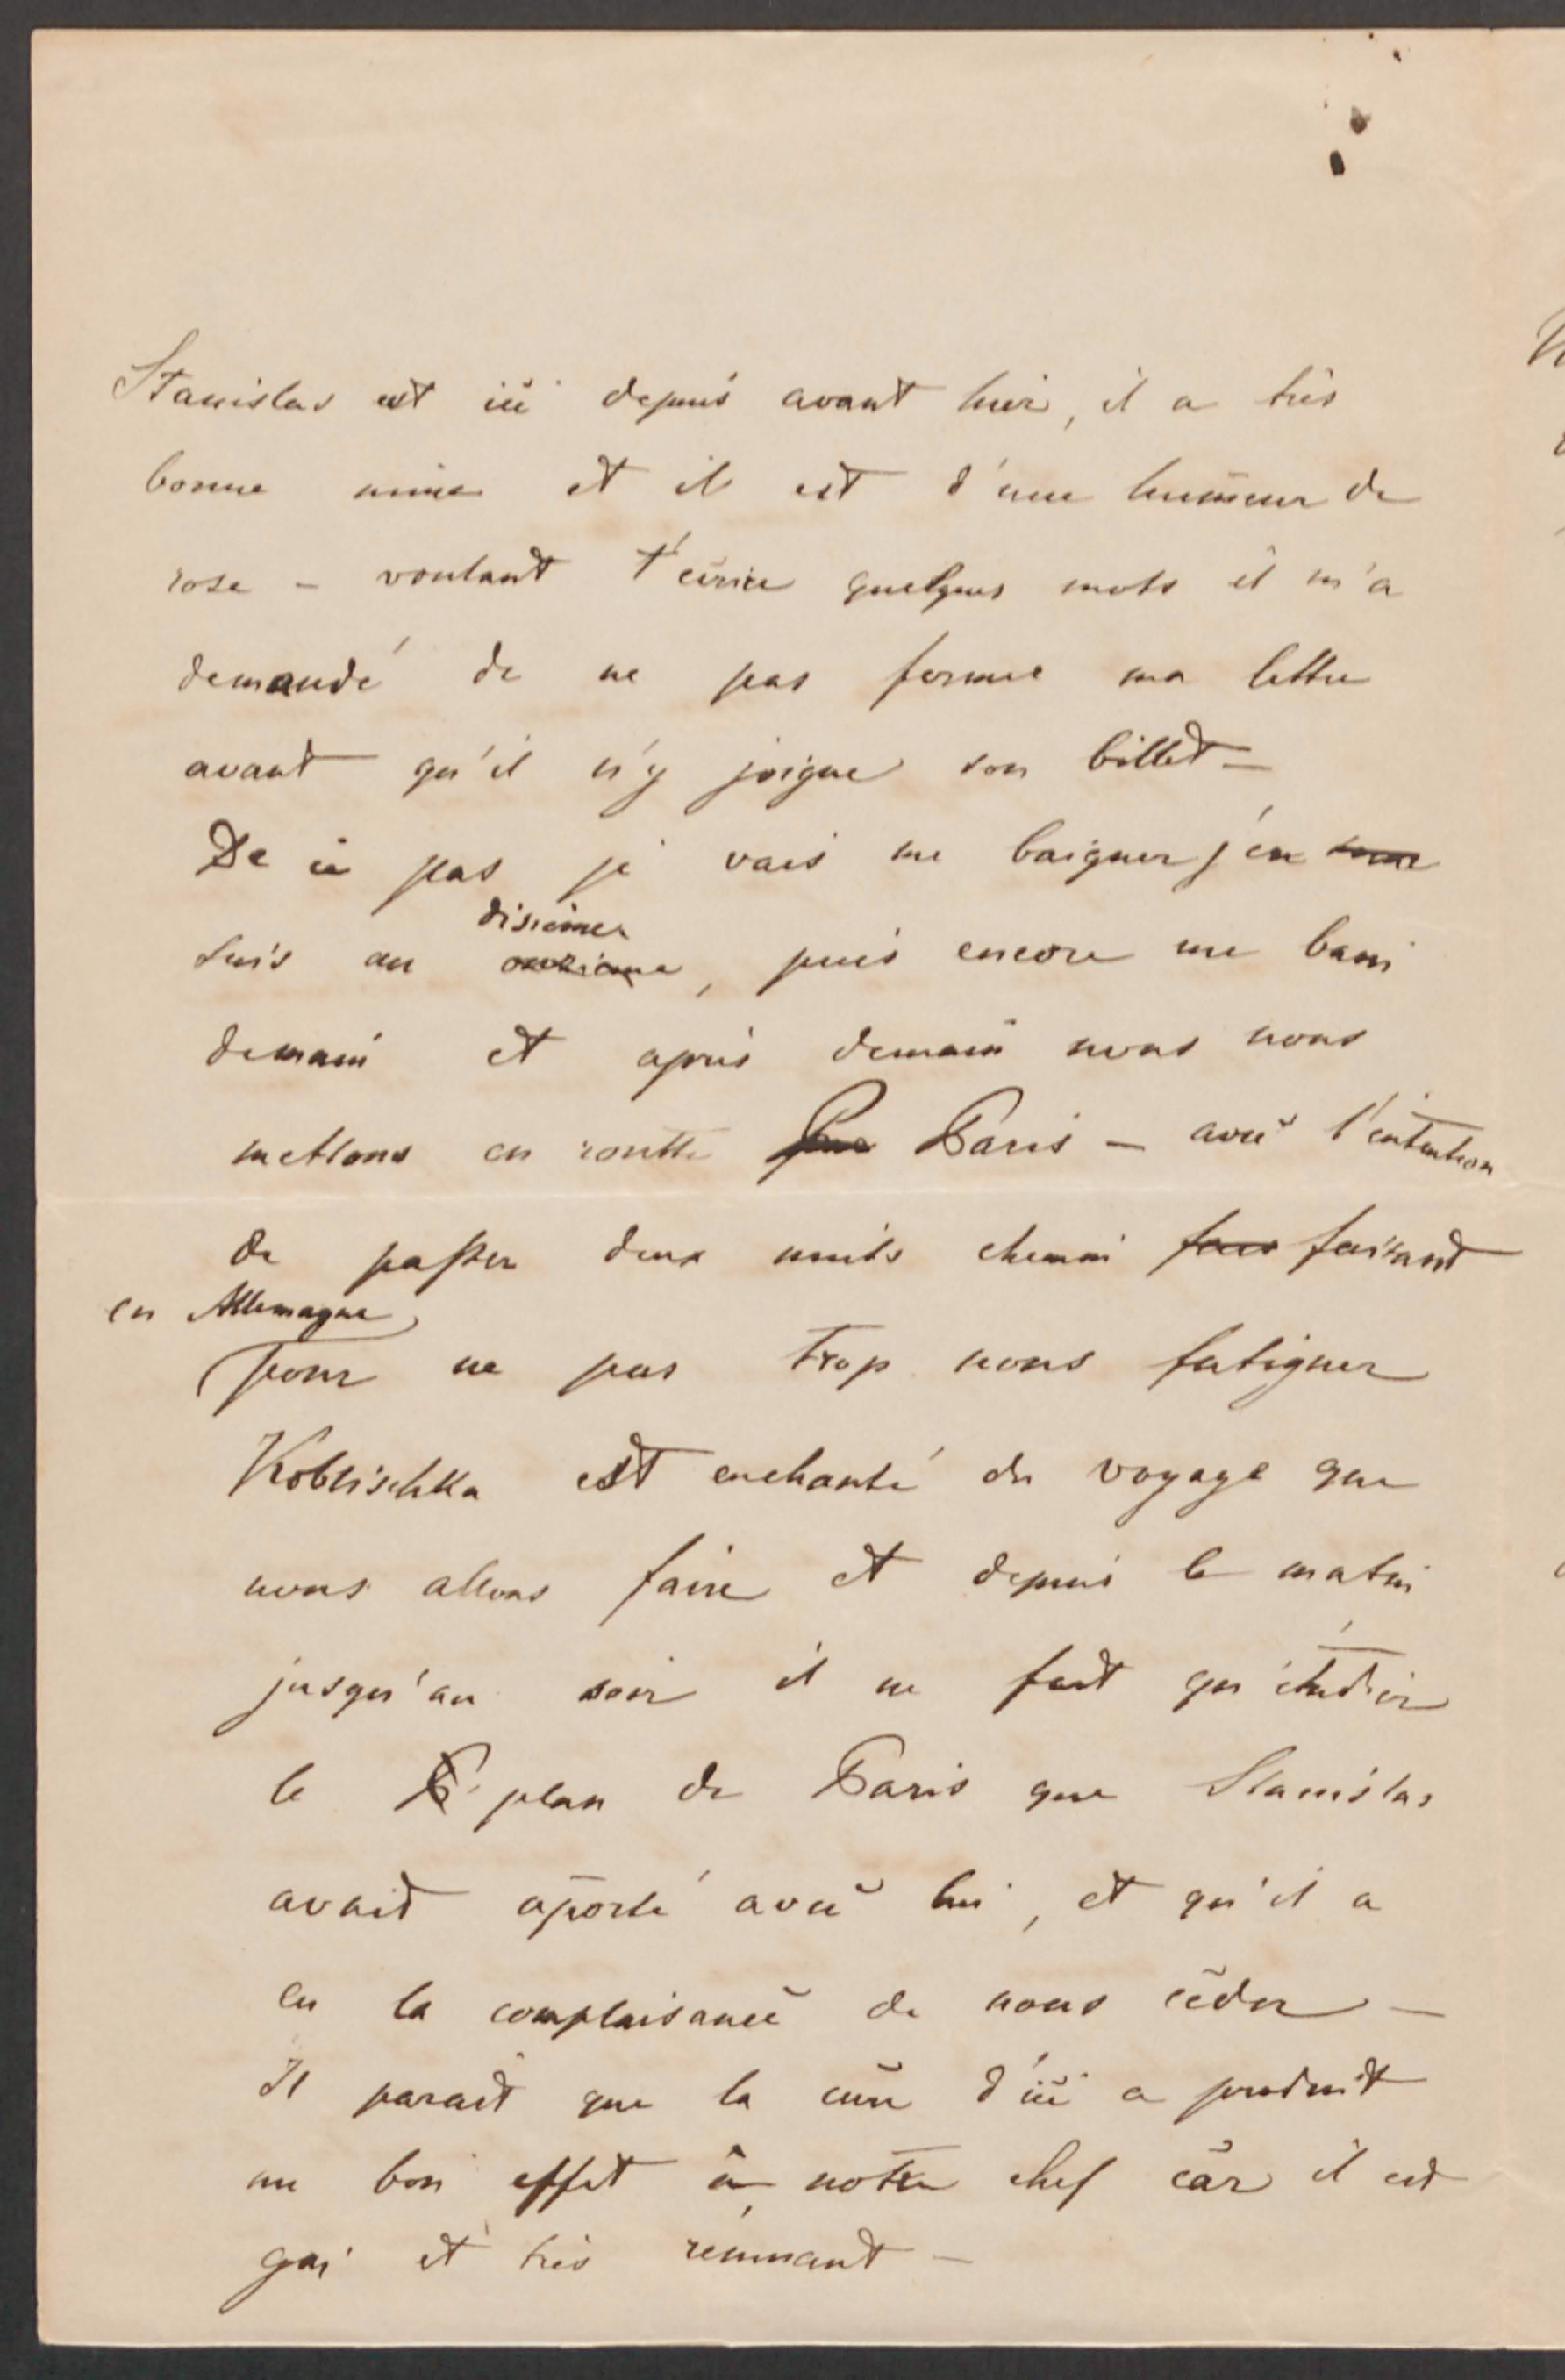 Stanislas est ici depuis avant hier, il a très
bonne mine et il est d'une humeur de
rose – voulant t'écrire quelques mots il m'a
demandé de ne pas fermer ma lettre
avant qu'il n'y joigne son billet –
De ce pas je vais me baigner j'en
suis au disième onzième, puis encore un bain
demain et après demain nous nous
mettons en routte pour Paris – avec l'intention
de passer deux nuits chemin fais faisant
en Allemagne
pour ne pas trop nous fatiguer
Koblischka est enchanté du voyage que
nous allons faire et depuis le matin
jusqu'au soir il ne fait qu'étudier
le P plan de Paris que Stanislas
avait aporté avec lui, et qu'il a
eu la complaisance de nous céder –
Il parait que la cure d'ici a produit
un bon effet à notre chef car il est
gai et très remuant –